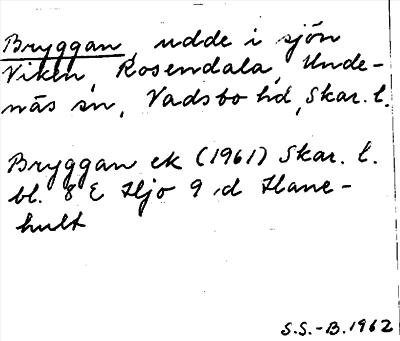 Bryggan, udde i sjön
Viken, Rosendala, Unde-
näs sn, Vadsbo hd, Skar. l.
Bryggan ek (1961) Skar. l.
bl. 8 E Hjo 9 d Hane-
hult
S.S.-B. 1962